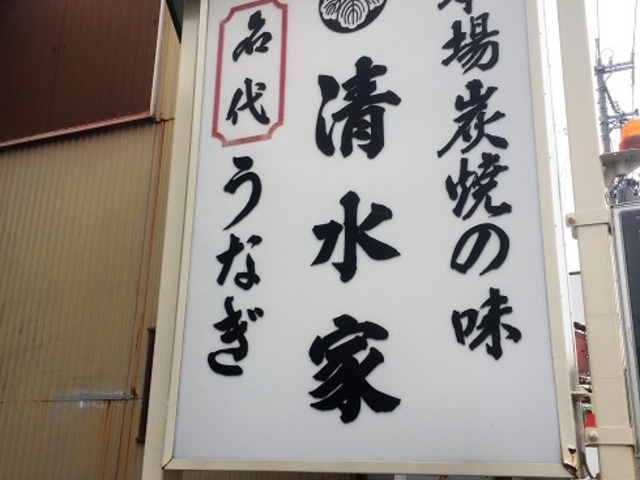 本場炭焼の味
清水家
名代
うなぎ